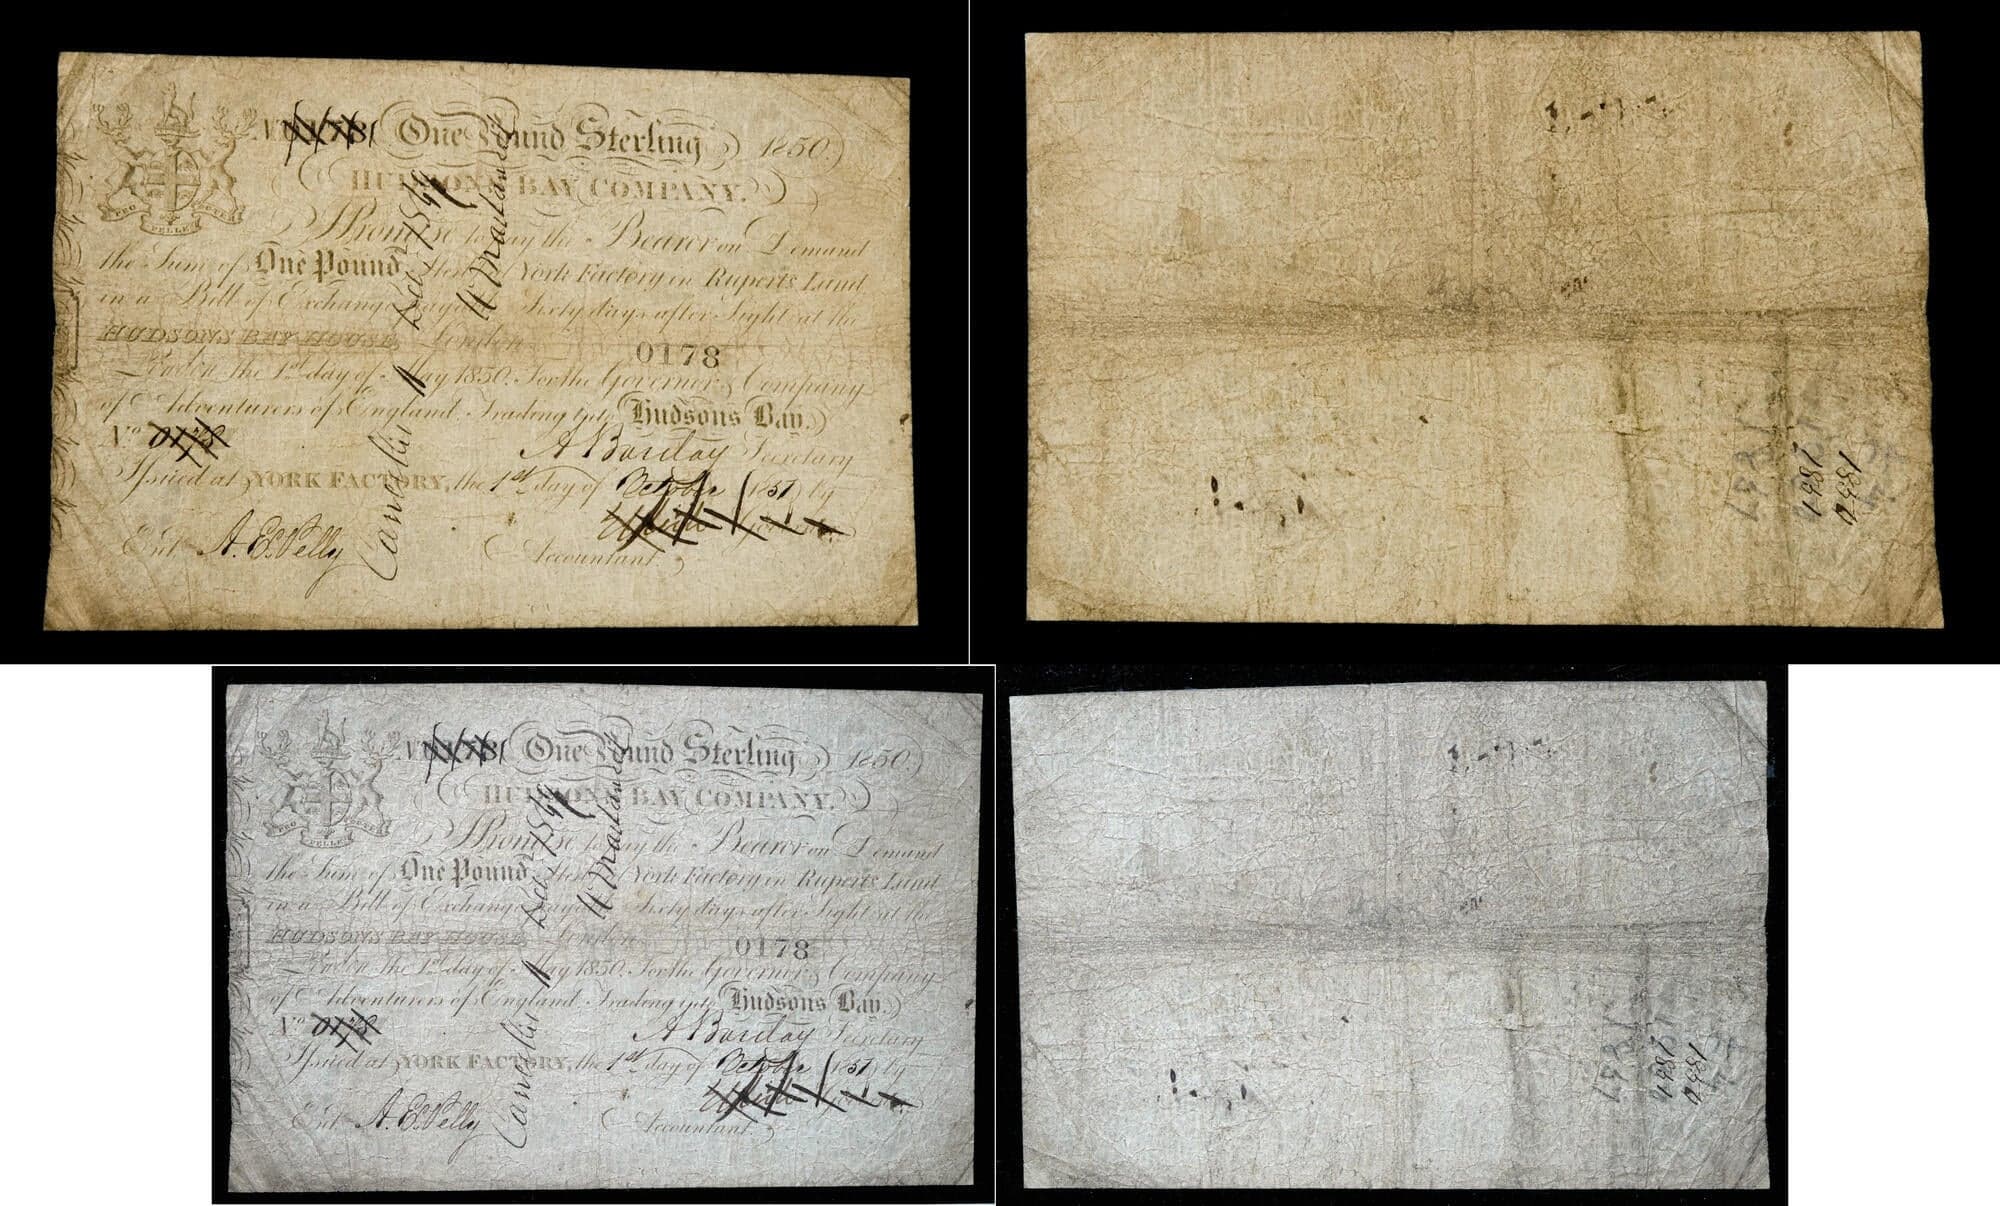 No 0178 One Pound Sterling 1850.
HUDSONS BAY COMPANY.
PRO PELLE CUTEM
I Promise to pay the Bearer on Demand
the Sum of One Pound Sterl at York Factory in Ruperts Land
in a Bill of Exchange payable Sixty days after Sight at the
HUDSONS BAY HOUSE, London
0178
London the 1st day of May 1850. For the Governor & Company
of Adventurers of England Trading into Hudsons Bay.
No 0178
A Barclay Secretary
Issued at YORK FACTORY, the 1st day of October 1851 by
Ent A. E. Pelly
Accountant
Cancelled
W Mactavish
1881
No 0178 One Pound Sterling 1850.
HUDSONS BAY COMPANY.
PRO PELLE CUTEM
I Promise to pay the Bearer on Demand
the Sum of One Pound Sterl at York Factory in Ruperts Land
in a Bill of Exchange payable Sixty days after Sight at the
HUDSONS BAY HOUSE, London
0178
London the 1st day of May 1850. For the Governor & Company
of Adventurers of England Trading into Hudsons Bay.
No 0178
A Barclay Secretary
Issued at YORK FACTORY, the 1st day of October 1851 by
Ent A. E. Pelly
Accountant
Cancelled
W Mactavish
1881